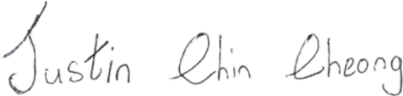 Justin Chin Cheong